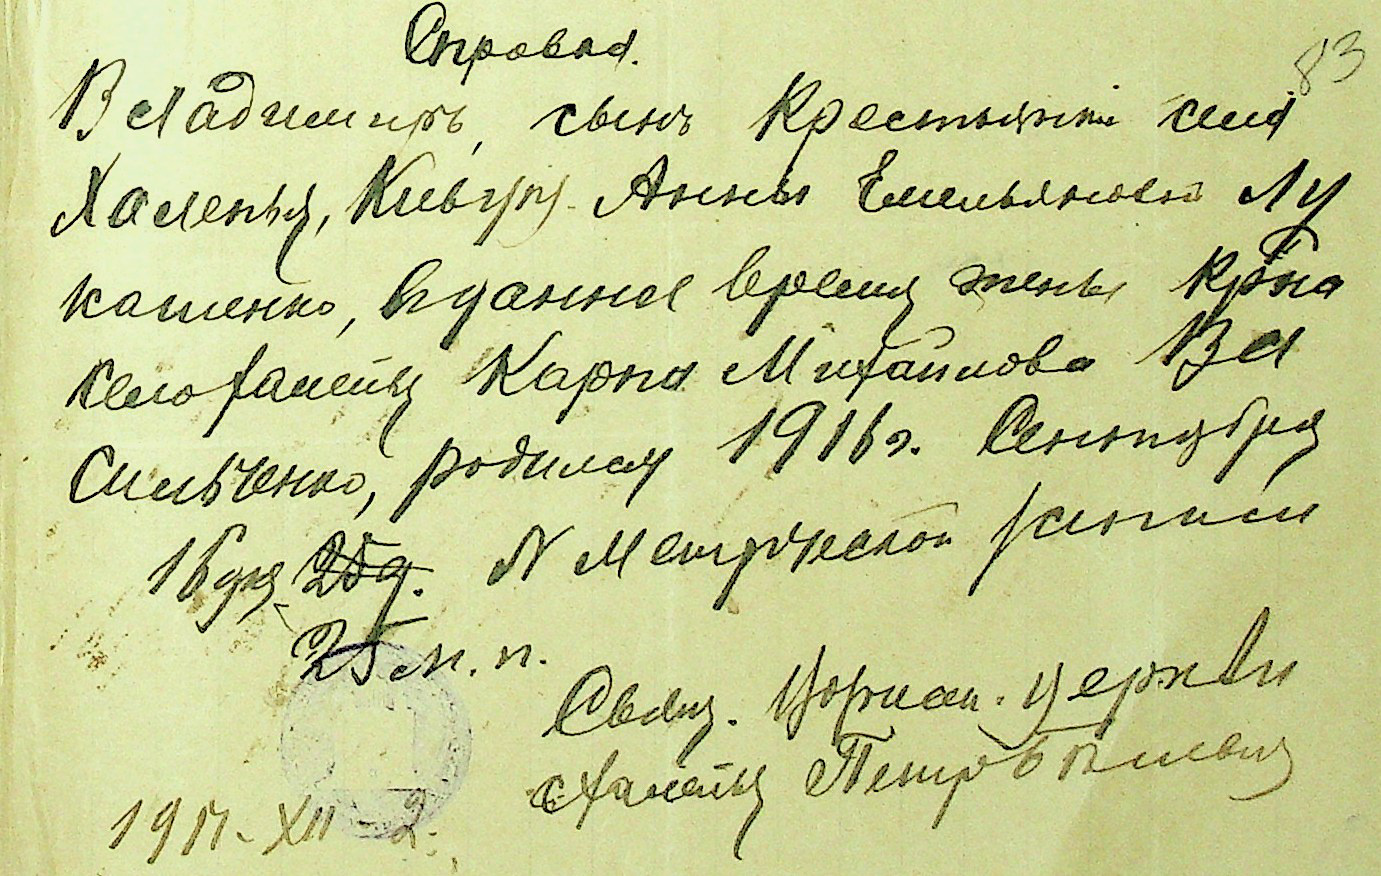 Справка.
83
Владимиръ, сынъ Крестьянки села
Халепья, Кіевъ губ. Анны Емельяновой Лу
кашенко, въ данное время жены Кр-на
села Халепья Карпа Михайлова Ва
сильченко, родился 1916 г. Сентября
16 дня 25 д. № Метрической записи
25 м. п.
Свящ. церкви
с. Халепья Петръ
1917 - XII - 2.